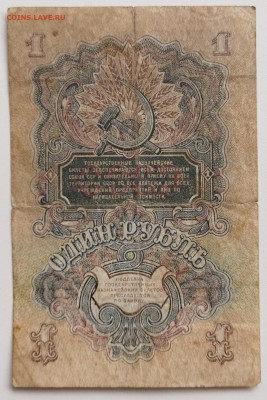 COINS.LAVE.RU
1
1
ГОСУДАРСТВЕННЫЕ КАЗНАЧЕЙСКИЕ
БИЛЕТЫ ОБЕСПЕЧИВАЮТСЯ ВСЕМ ДОСТОЯНИЕМ
СОЮЗА ССР И ОБЯЗАТЕЛЬНЫ К ПРИЕМУ НА ВСЕЙ
ТЕРРИТОРИИ СССР ВО ВСЕ ПЛАТЕЖИ ДЛЯ ВСЕХ
УЧРЕЖДЕНИЙ, ПРЕДПРИЯТИЙ И ЛИЦ ПО
НАРИЦАТЕЛЬНОЙ СТОИМОСТИ.
ОДИН РУБЛЬ
ГОСУДАРСТВЕННЫХ
1
1